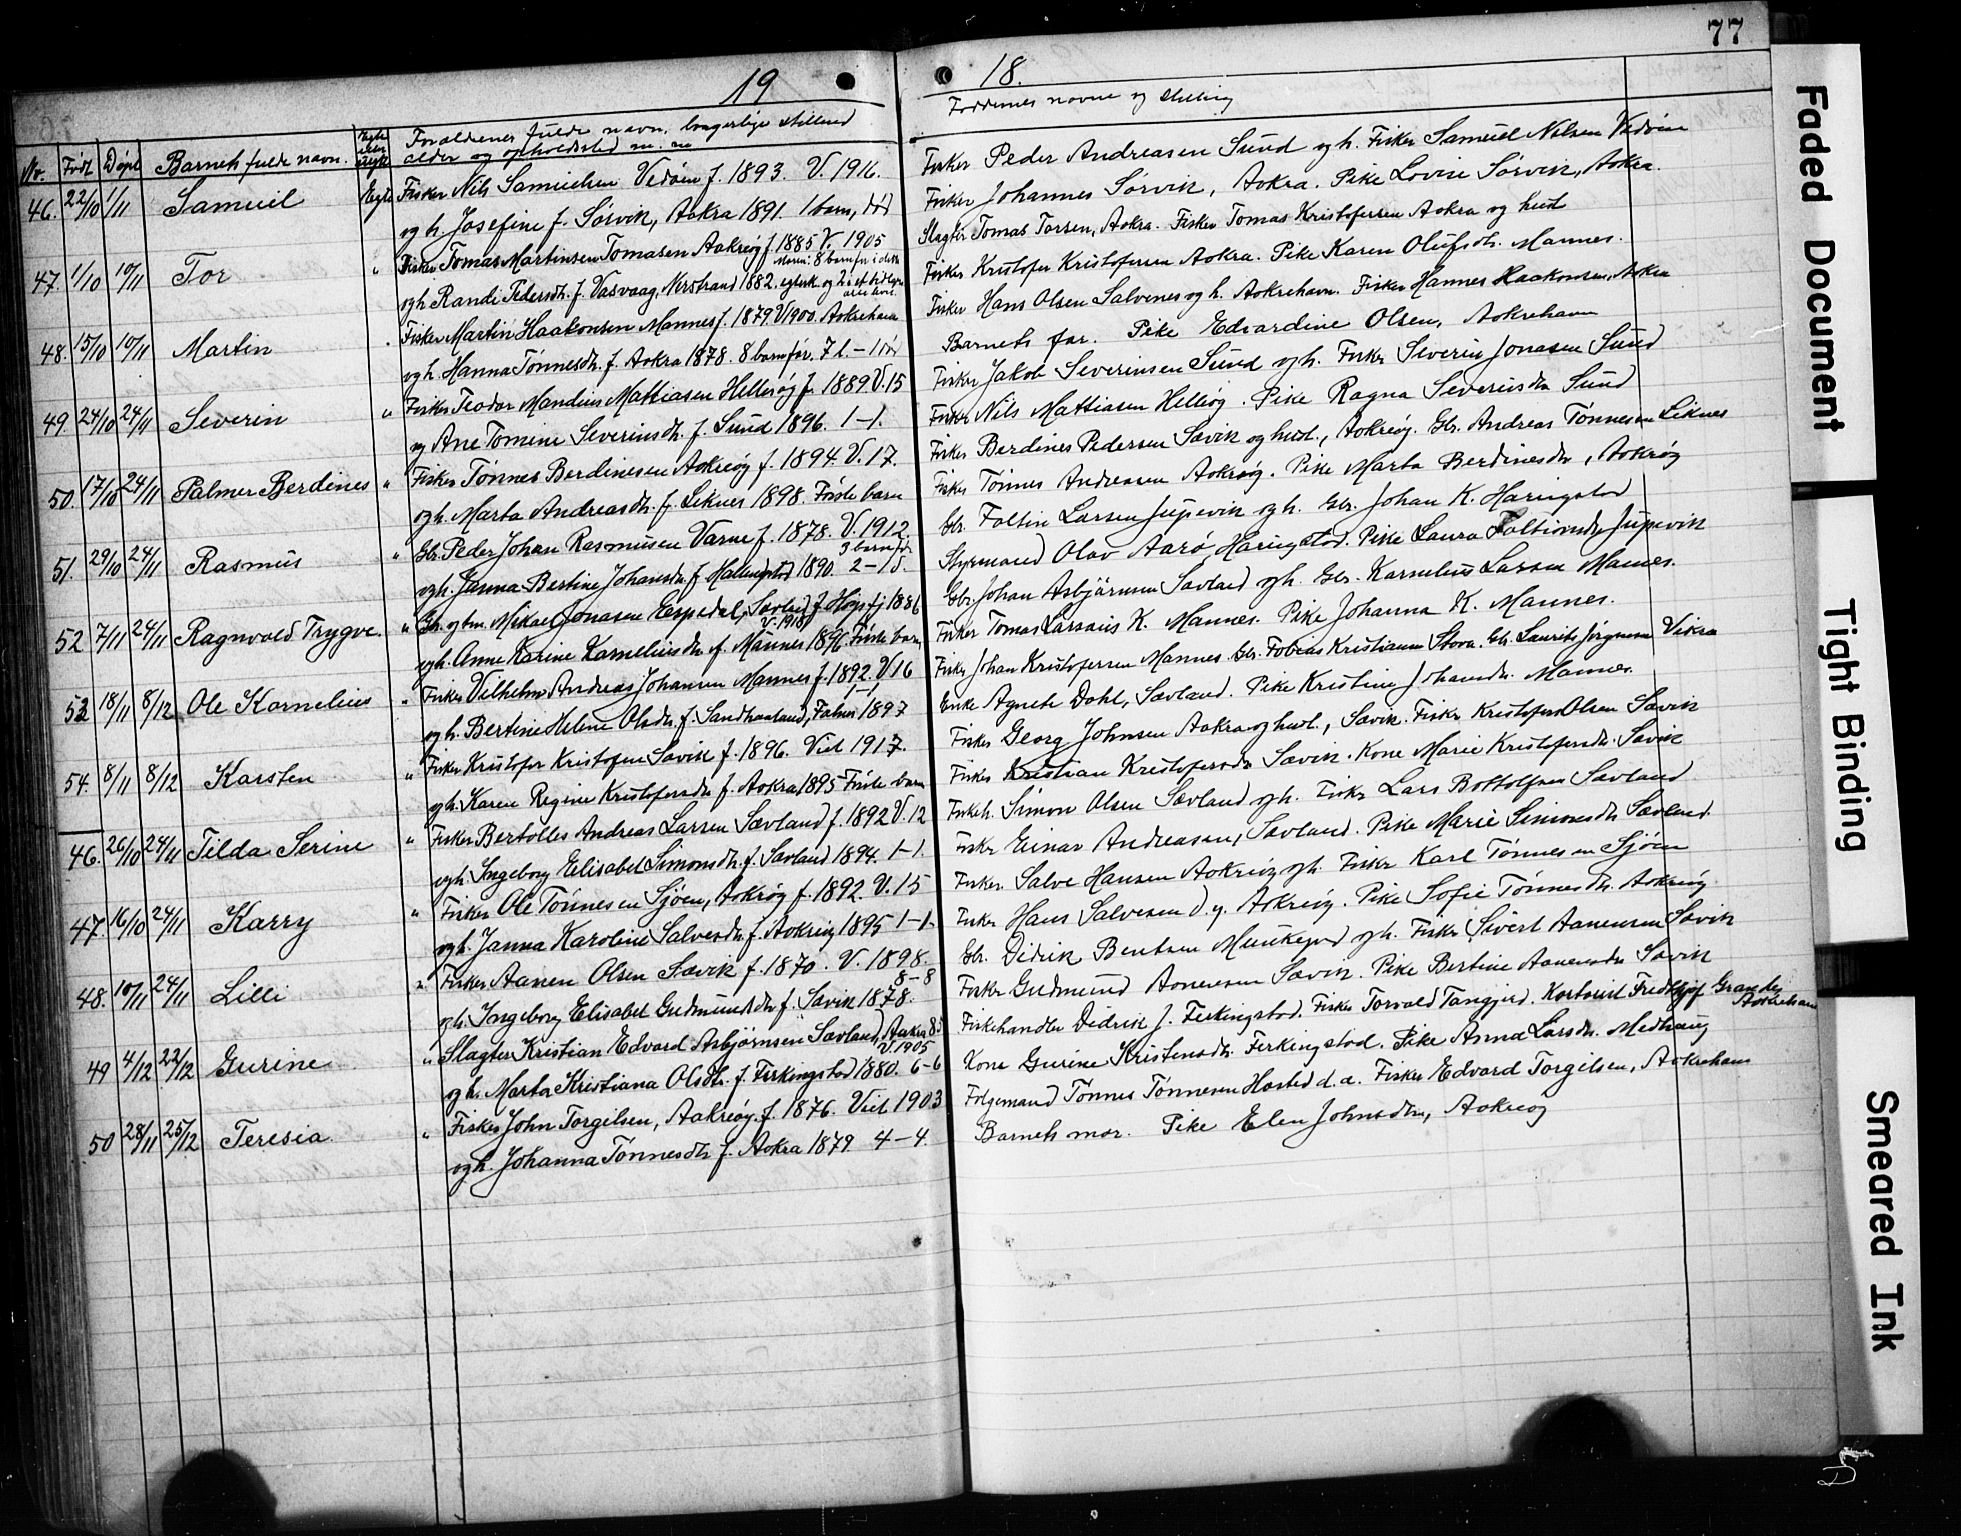 77
19
18.
No. Født Døpt Barnets fulde navn. Egte eller Uegte Forældrenes fulde navn, borgerlige stilling
alder og opholdssted m. m
Faddernes navne og stilling
46. 22/10 1/11 Samuel Egte Fisker Nils Samuelsen Vedøen f. 1893. V. 1916.
og h. Josefine f. Sørvik, Aakra 1891. 1 barn, død
Fisker Peder Andreasen Sund og h. Fisker Samuel Nilsen Vedøen
Fisker Johannes Sørvik, Aakra. Pike Lovise Sørvik, Aakra.
47. 1/10 10/11 Tor " Fisker Tomas Martinsen Tomasen Aakreøy f. 1885 V. 1905
og h. Randi Pedersdtr. f. Vasvaag, Nerstrand 1882.
Slagter Tomas Torsen, Aakra. Fisker Tomas Kristofersen Aakra og hust
Fisker Kristofer Kristofersen Aakra. Pike Karen Olufsdtr. Mannes.
48. 15/10 10/11 Martin " Fisker Martin Haakonsen Mannes f. 1879 V 1900. Aakrehavn
og h. Hanna Tønnesdtr. f. Aakra 1878. 8 barn før. 7 l. - 1 død
Fisker Hans Olsen Salvenes og h. Aakrehavn. Fisker Hannes Haakonsen, Aakra
Barnets far. Pike Edvardine Olsen, Aakrehavn
49. 24/10 24/11 Severin " Fisker Teodor Mandius Mattiasen Hellesøy f. 1889 V. 15
og Ane Tomine Severinsdtr. f. Sund 1896. 1-1.
Fisker Jakob Severinsen Sund og h. Fisker Severin Jonasen Sund
Fisker Nils Mattiasen Hellesøy. Pike Ragna Severinsdtr Sund
50. 17/10 24/11 Palmer Berdines " Fisker Tønnes Berdinesen Aakreøy f. 1894. V. 17.
og h. Marta Andreasdtr. f. Liknes 1898. Første barn
Fisker Berdines Pedersen Sævik og hust., Aakreøy. Gbr. Andreas Tønnesen Liknes
Fisker Tønnes Andreasen Aakreøy. Pike Marta Berdinesdtr, Aakrøy
51. 29/10 24/11 Rasmus " Gbr. Peder Johan Rasmusen Varne f. 1878. V. 1912.
3 barn før
og h. Janna Bertine Johansdtr. f. 1890. 2-1 d.
Gbr. Foltin Larsen Jupevik og h. Gbr. Johan K. Haringstad
Styrmand Olav Aarø, Haringstad. Pike Laura Foltinsdtr Jupevik
52 7/11 24/11 Ragnvald Trygve. " Gbr. og tm. Mikael Jonasen Espedal, Sævland f. Høgsfj 1886
V. 1918
og h. Anne Karine Kornelinsdtr. f. Mannes 1896. Første barn
Gbr. Johan Asbjørnsen Sævland og h. Gbr. Kornelius Larsen Mannes.
Fisker Tomas Larsaus K. Mannes. Pike Johanna K. Mannes.
53 18/11 8/12 Ole Kornelius " Fisker Vilhelm Andreas Johansen Mannes f. 1892. V 16
1-1
og h. Bertine Helene Olsdtr. f. Sandhaaland, Falnes 1897
Fisker Johan Kristofersen Mannes. Gbr. Tobias Kristiansen Stova. Gbr. Laurits Jørgensen Vikra
Enke Agnete Dahl, Sævland. Pike Kristine Johansdtr. Mannes.
54. 8/11 8/12 Karsten " Fisker Kristofer Kristofersen Sævik f. 1896. Viet 1917.
og h. Karen Regine Kristofersdtr f. Aakra 1895 Første barn
Fisker Georg Johnsen Aakra og hust., Sævik. Fisker Kristofer Olsen Sævik
Fisker Kristian Kristofersdtr Sævik. Kone Marie Kristofersdtr. Sævik
46. 26/10 24/11 Tilda Serine " Fisker Bertolles Andreas Larsen Sævland f. 1892 V. 12
og h. Ingeborg Elisabet Simonsdtr. f. Sævland 1894. 1-1.
Fiskeh. Simon Olsen Sævland og h. Fisker Lars Bottolfsen Sævland
Fisker Einar Andreasen, Sævland. Pike Marie Simonsdtr Sævland.
47. 16/10 24/11 Karry " Fisker Ole Tønnesen Sjøen, Aakrøy f. 1892. V. 15
og h. Janna Karoline Salvesdtr. f. Aakreøy 1895 1-1.
Fisker Salve Hansen Aakreøy og h. Fisker Karl Tønnesen Sjøen
Fisker Hans Salvesen d.y. Aakreøy. Pike Sofie Tønnesdtr. Aakreøy
48. 10/11 24/11 Lilli " Fisker Aanen Olsen Sævik f. 1870. V. 1898.
8-8
og h. Ingeborg Elisabet Gudmundsdtr f. Sævik 1878.
Gbr. Didrik Bentsen Munkejord og h. Fisker Sivert Aanensen Sævik
Fisker Gudmund Aanensen Sævik. Pike Bertine Aanensdtr Sævik
49 4/12 22/12 Gurine " Slagter Kristian Edvard Asbjørnsen Sævland,
V. 1905
og h. Marta Kristiana Olsdtr. f. Ferkingstad 1880. 6-6
Fiskehandler Dedrik J. Ferkingstad. Fisker Torvald Tangjerd. Kontorist Fredtjof Grandes
Aakrehavn
Kone Gurine Kristensdtr. Ferkingstad. Pike Anna Larsdtr. Medhaug
50 28/11 25/12 Teresia " Fisker John Torgilsen, Aakreøy f. 1876. Viet 1903
og h. Johanna Tønnesdtr f. Aakra 1879 4-4.
Følgemand Tønnes Tønnesen Hasted d.æ. Fisker Edvard Torgilsen, Aakrehavn
Barnets mor. Pike Elen Johnsdtr, Aakreøy
Faded Document
Tight Binding
Smeared Ink